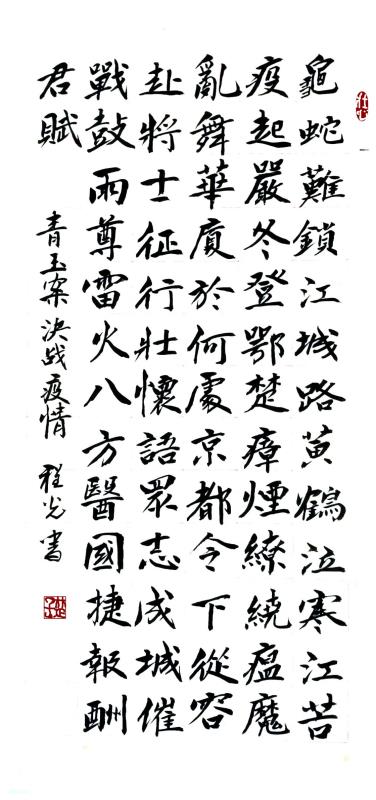 龜蛇難鎖江城路黃鶴泣寒江苦
疫起嚴冬登鄂楚瘴煙繚繞瘟魔
亂舞華廈於何處京都令下從容
赴將士征行壯懷語眾志成城催
戰鼓兩尊雷火八方醫國捷報酬
君賦
青玉案決战疫情 程光書